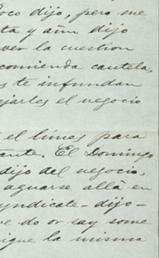 oco dijo, pero me
ta y aún dijo
ver la cuestion
comienda cautela,
s te infundan
ejarles el negocio
el lunes para
ante. El Domingo
dijo del negocio,
aguarse allá en
yndicate - dijo -
e do or say some
igue la misma